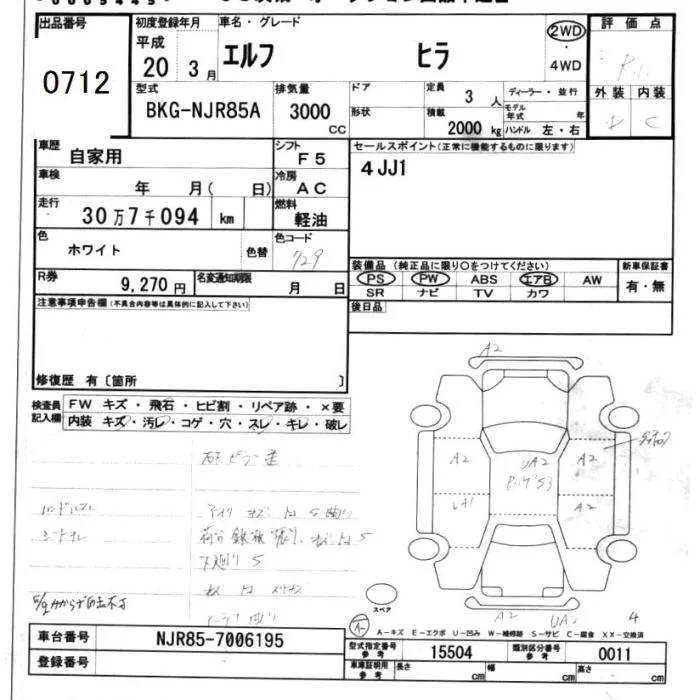 出品番号 初度登録年月 車名・グレード 2WD 評価点
0712 平成 20 3月 エルフ ヒラ 4WD
型式 排気量 ドア 定員 3人 ディーラー・並行 外装 内装
BKG-NJR85A 3000 CC 形状 積載 2000kg モデル年式 年 ハンドル 左・右 C
車歴 自家用 シフト F5 セールスポイント(正常に機能するものに限ります)
車検 年 月( 日) 冷房 AC 4JJ1
走行 30万7千094 km 燃料 軽油
色 ホワイト 色替 色コード 729
装備品(純正品に限り○をつけてください) 新車保証書
R券 9,270円 名変通知期限 月 日 PS PW ABS エアB AW 有・無
SR ナビ TV カワ
注意事項申告欄(不具合内容等は具体的に記入して下さい) 後日品
修復歴 有〔箇所 〕
検査員記入欄 FW キズ・飛石・ヒビ割・リペア跡・×要
内装 キズ・汚レ・コゲ・穴・スレ・キレ・破レ
A2
A2 UA2 A2
UA1 A2
ハンドルスレ
シートスレ
下廻り S
スペア
A2 UA2 4
A-キズ E-エクボ U-凹み W-補修跡 S-サビ C-腐食 XX-交換済
車台番号 NJR85-7006195 型式指定番号 参考 15504 類別区分番号 参考 0011
登録番号 車庫証明用 参考 長さ cm 幅 cm 高さ cm